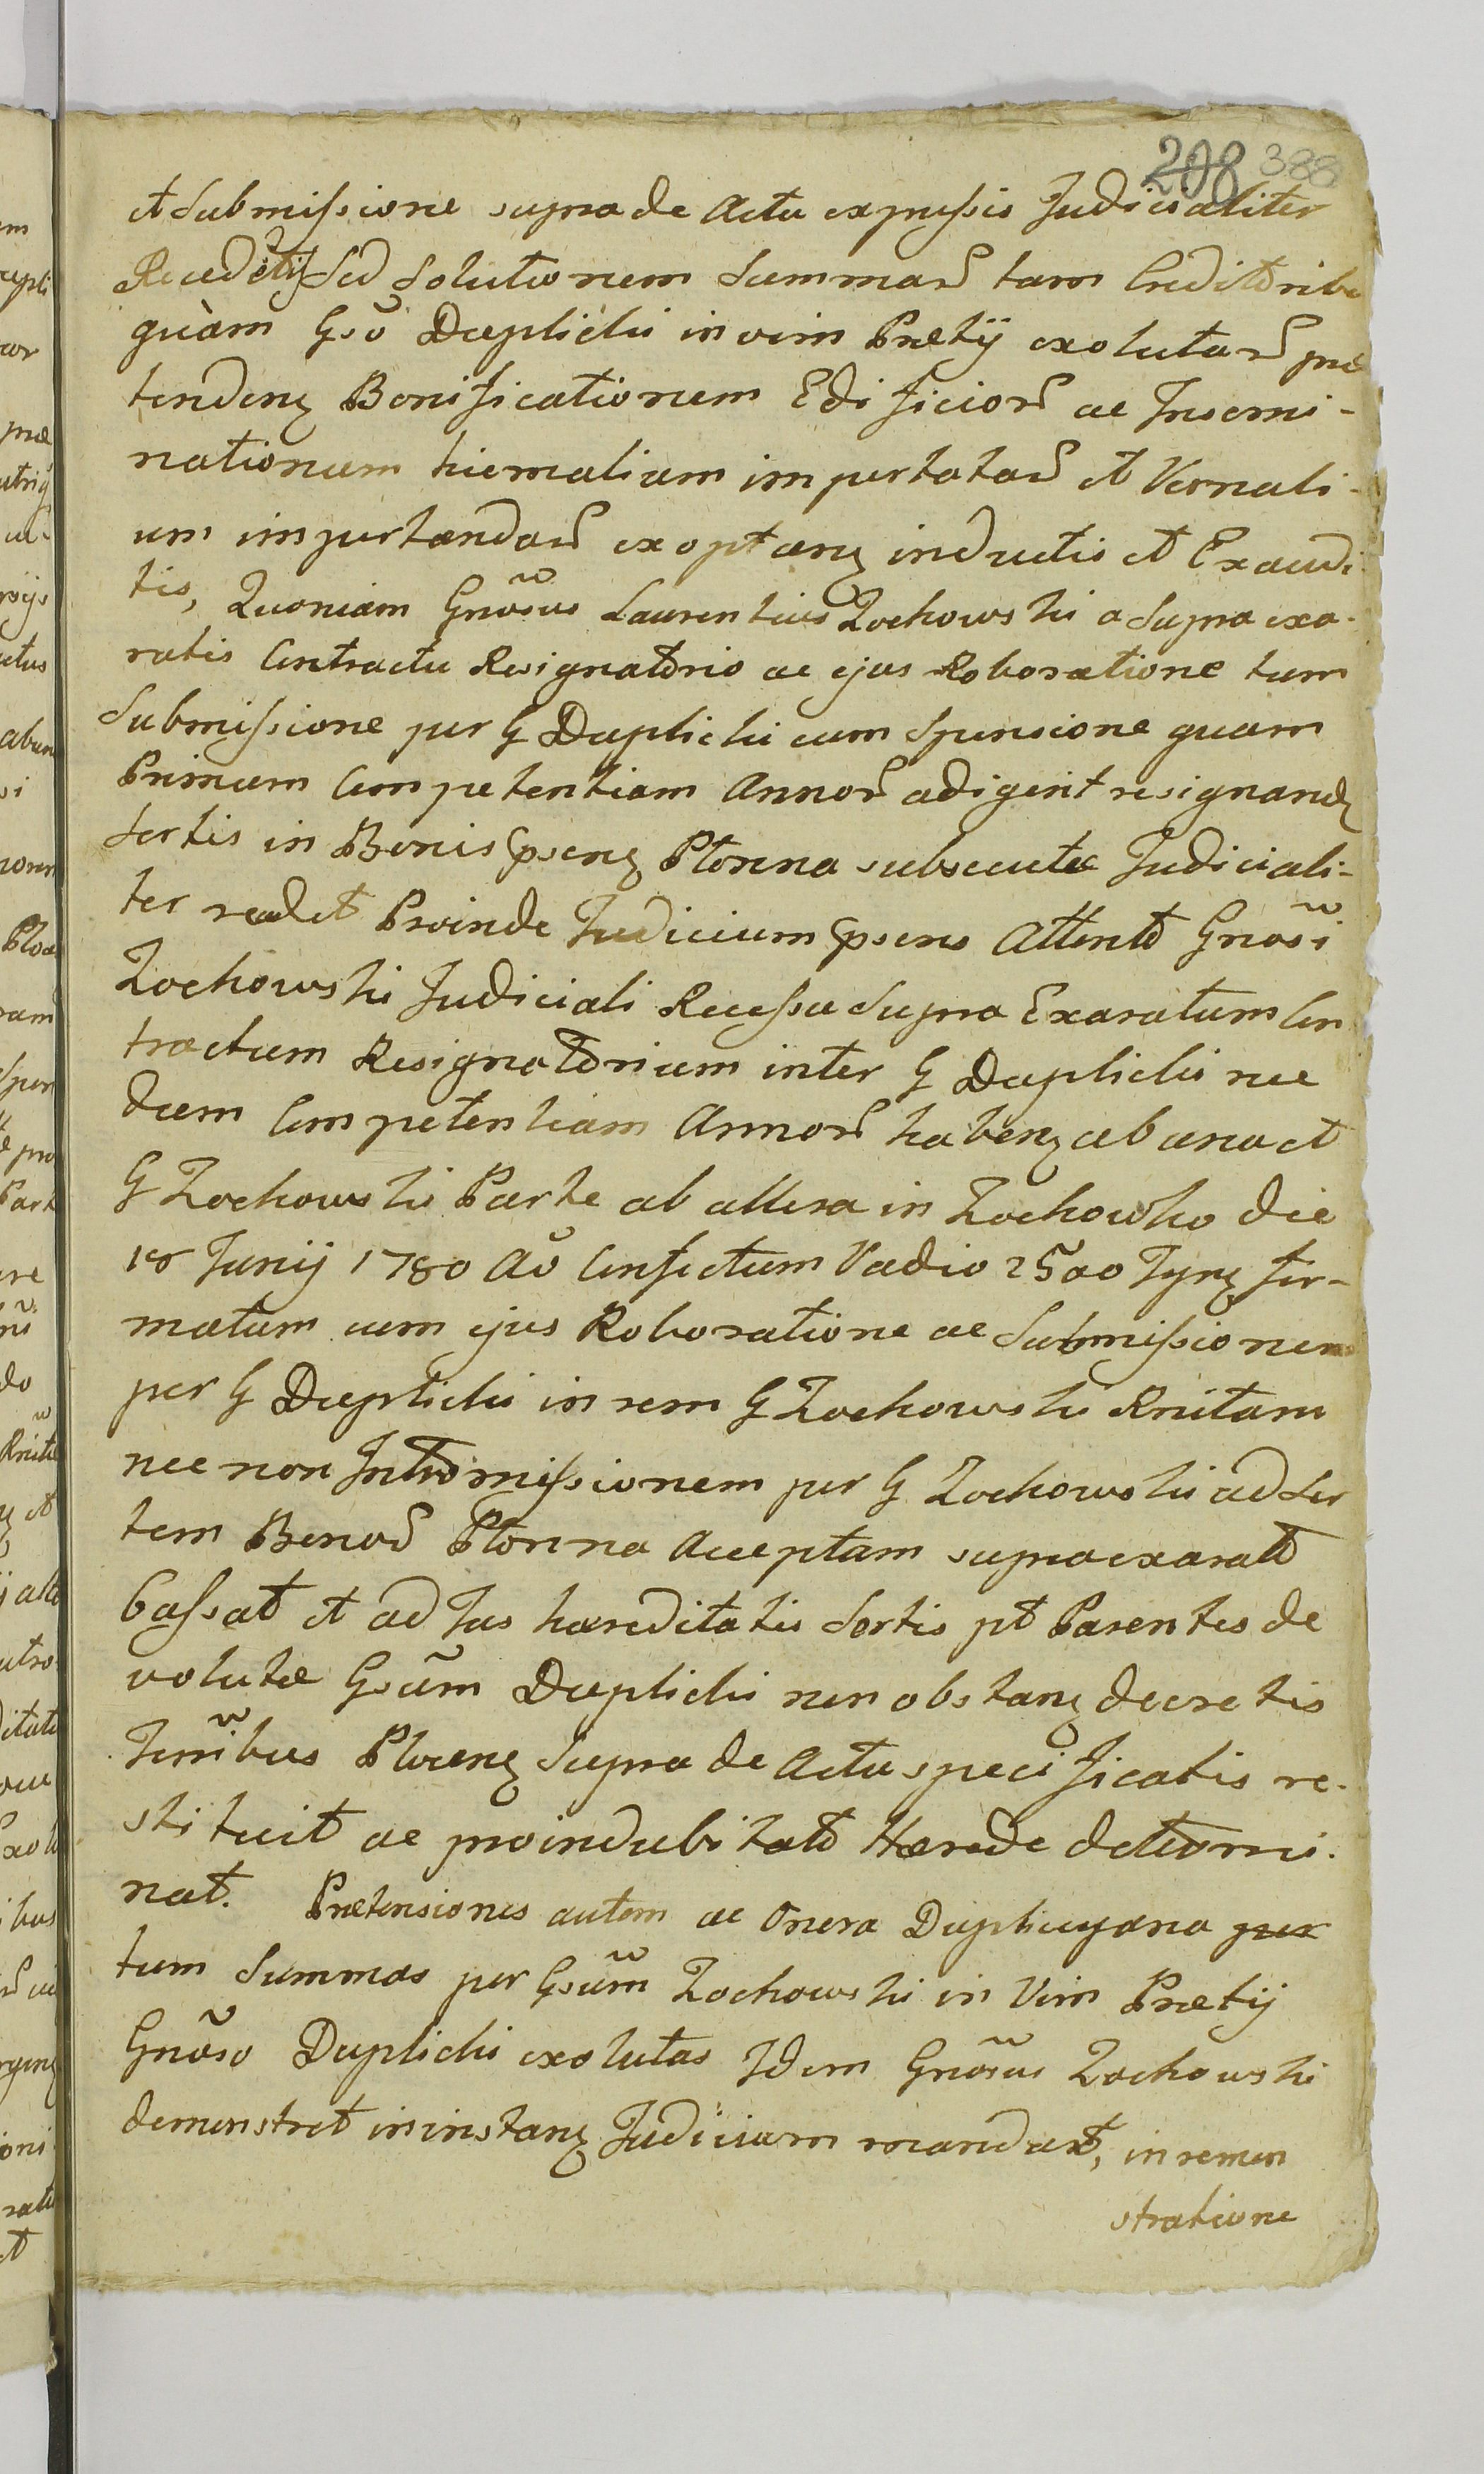 208 388
et Submissione supra de Actu expressis Judicialiter
Sed Solutionem Summar tam Creditorib
quàm Gsō Duplicki in vim Prætij exolutar præ
tendens Bonificationem Edificior ac Insemi-
nationum hiemalium importatar et Vernali-
um importandar exoptans inductis et Exaudi
tis, Quoniam Gnōsus Laurentius Zochowski a Supra exa-
ratis Contractu Resignatorio ac ejus Roboratione tum
Submissione per G Duplicki cum Sponsione quam
Primum Competentiam Annor adigerit resignandæ
Sortis in Bonis Płonna subsecuta Judiciali-
ter recedit Proinde Judicium psens Attento Gnōsi
Zochowski Judiciali Recessu Supra Exaratum Con
tractum Resignatorium inter G Duplicki nec
dum Competentiam Annor haben ab una et
G Zochowski Parte ab altera in Zochowko die
18 Junij 1780 Aō Confectum Vadio 2500 Tyn fir-
matum cum ejus Roboratione ac Submissionem
per G Duplicki in rem G Zochowski Rnitam
nec non Intromissionem per G Zochowski ad Sor
tem Bonor Płonna Acceptam supra exarat
Cassat et ad Jus hæreditatis Sortis pt Parentes de
volutæ Gsūm Duplicki non obstan decretis
Terribus Plocen Supra de Actu specificatis re-
stituit ac pro indubitato Hærede determi-
nat. Prætensiones autem ac Onera Duplicyana per
tum Summas per Gsūm Zochowski in Vim Prætij
Gnōso Duplicki exolutas Idem Gnōsus Zochowski
demonstret in instan Judicium mandat, in remon
stratione